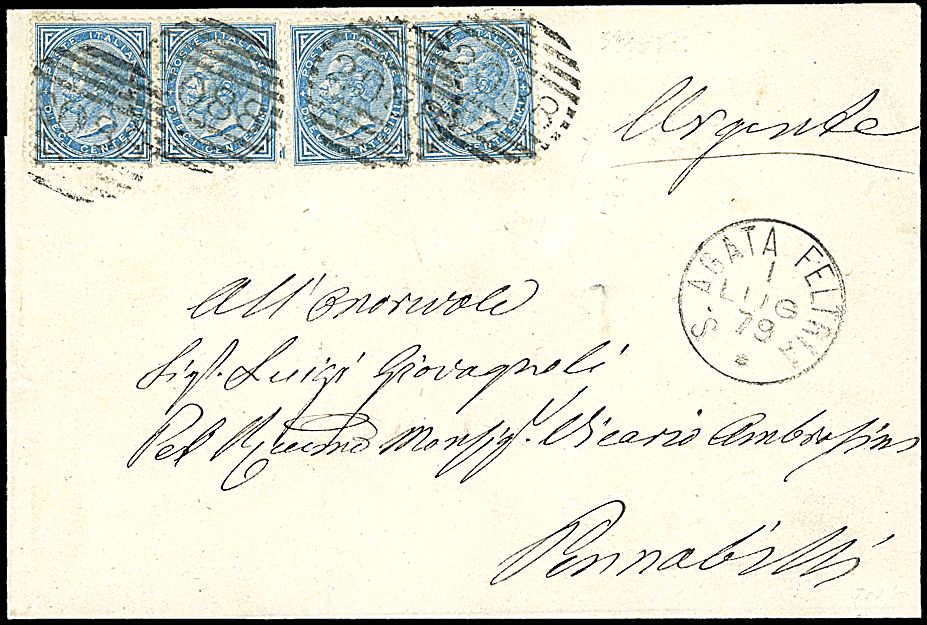 POSTE ITALIANE POSTE ITALIANE POSTE ITALIANE POSTE ITALIANE
DIECI CENTESIMI DIECI CENTESIMI DIECI CENTESIMI DIECI CENTESIMI
Urgente
S. AGATA FELTRIA
1
LUG
79
*
All'Onorevole
Sigr. Luigi Giovagnoli
Pel Monsigr. Vicario
Pennabilli